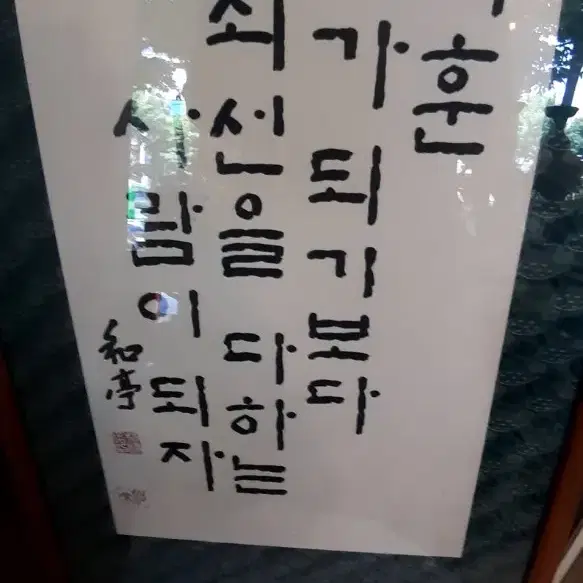 훈
가 되기보다
최선을 다하는
사람이 되자
和亭